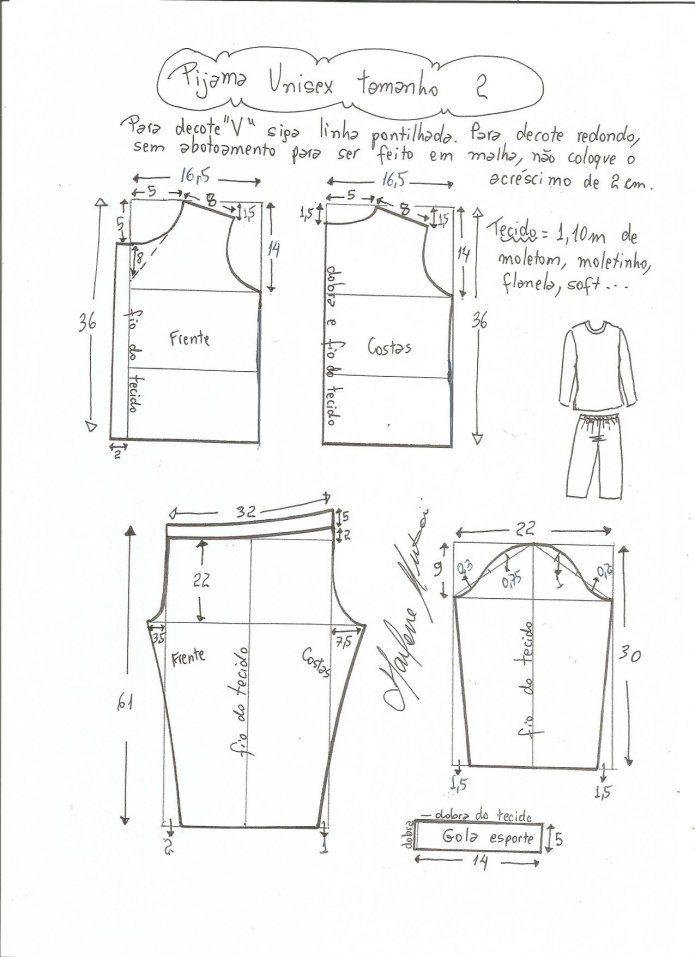 Pijama Unisex tamanho 2
Para decote "V" siga linha pontilhada. Para decote redondo,
sem abotoamento para ser feito em malha, não coloque o
acréscimo de 2 cm.
16,5
5
8
1,5
5
8
14
36
fio do tecido
Frente
2
16,5
5
8
1,5
1,5
14
36
dobra e fio do tecido
Costas
Tecido = 1,10m de
moletom, moletinho,
flanela, soft...
32
5
2
22
3,5
7,5
Frente
fio do tecido
Costas
61
2
1
Marlene
22
9
0,3
0,75
1
30
fio do tecido
1,5
1,5
— dobra do tecido
dobra
Gola esporte
5
14